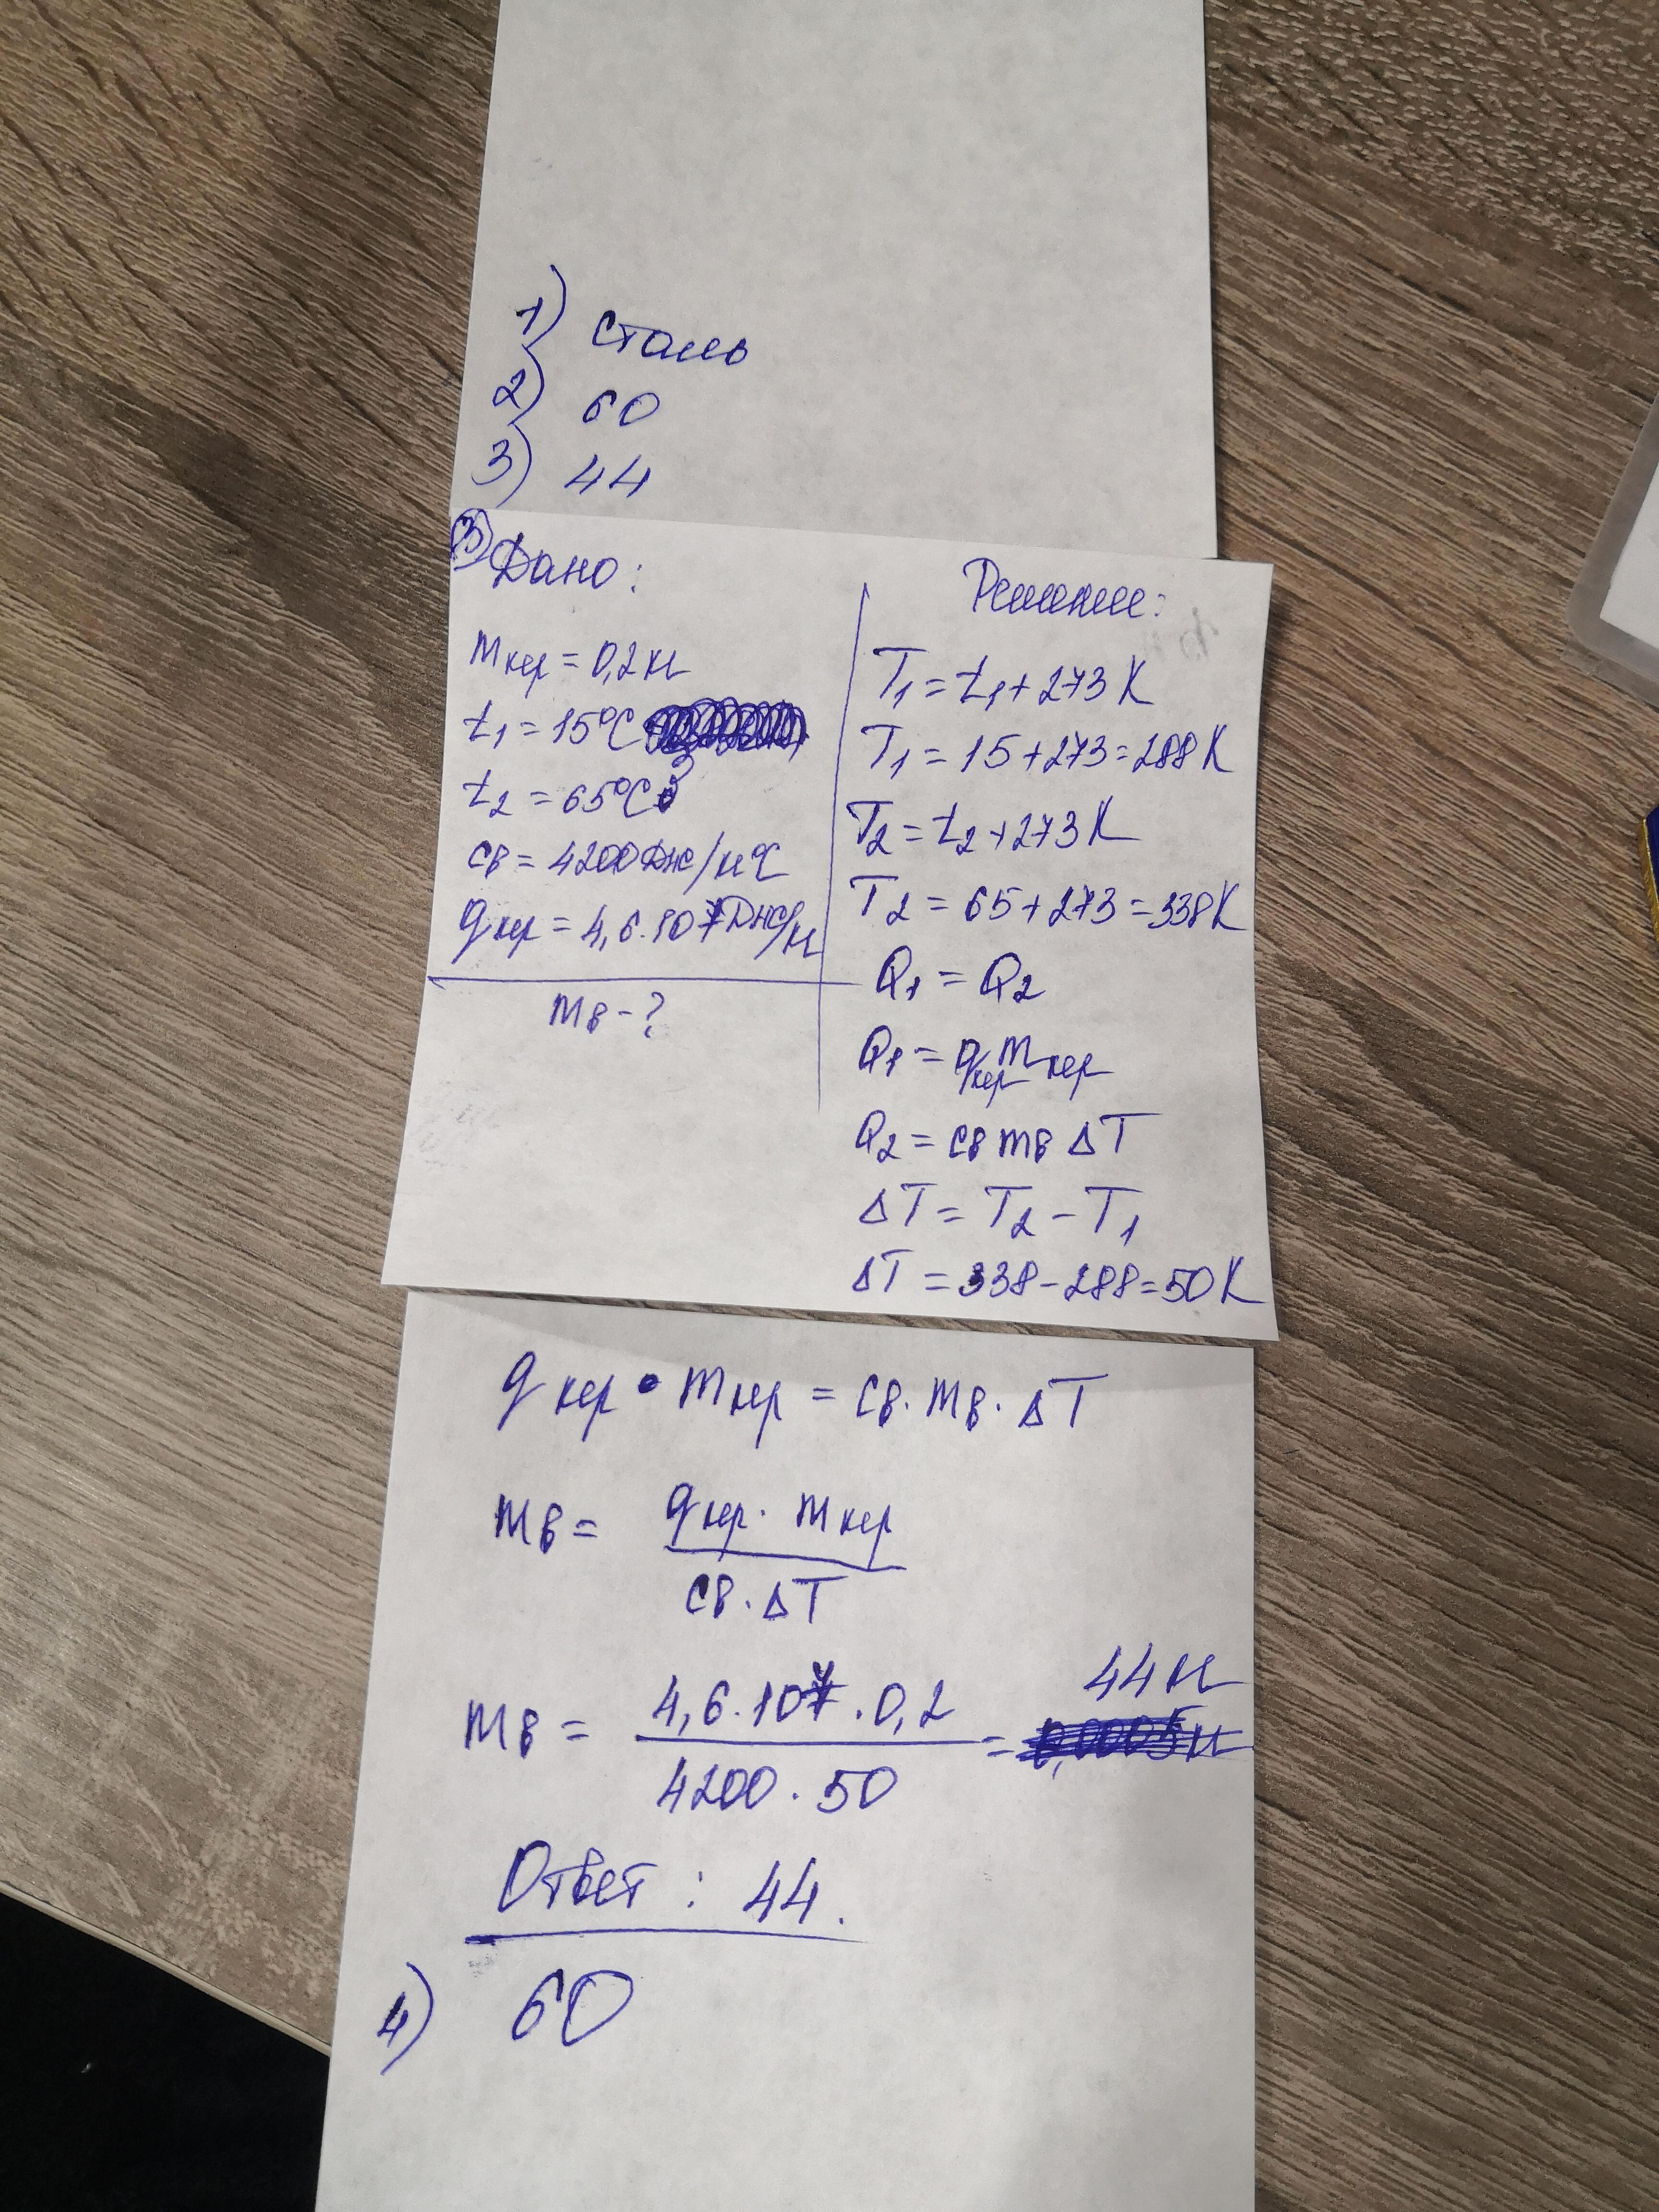 1) сталь
2) 60
3) 44
3) Дано:
mкер = 0,2 кг
t₁ = 15°C
t₂ = 65°C
cв = 4200 Дж/кг°C
qкер = 4,6·10⁷ Дж/кг
mв - ?
Решение:
T₁ = t₁ + 273 К
T₁ = 15 + 273 = 288 К
T₂ = t₂ + 273 К
T₂ = 65 + 273 = 338 К
Q₁ = Q₂
Q₁ = qкер mкер
Q₂ = cв mв ΔT
ΔT = T₂ - T₁
ΔT = 338 - 288 = 50 К
qкер · mкер = cв · mв · ΔT
mв = qкер · mкер / cв · ΔT
mв = 4,6·10⁷ · 0,2 / 4200 · 50 = 44 кг
Ответ: 44.
4) 60